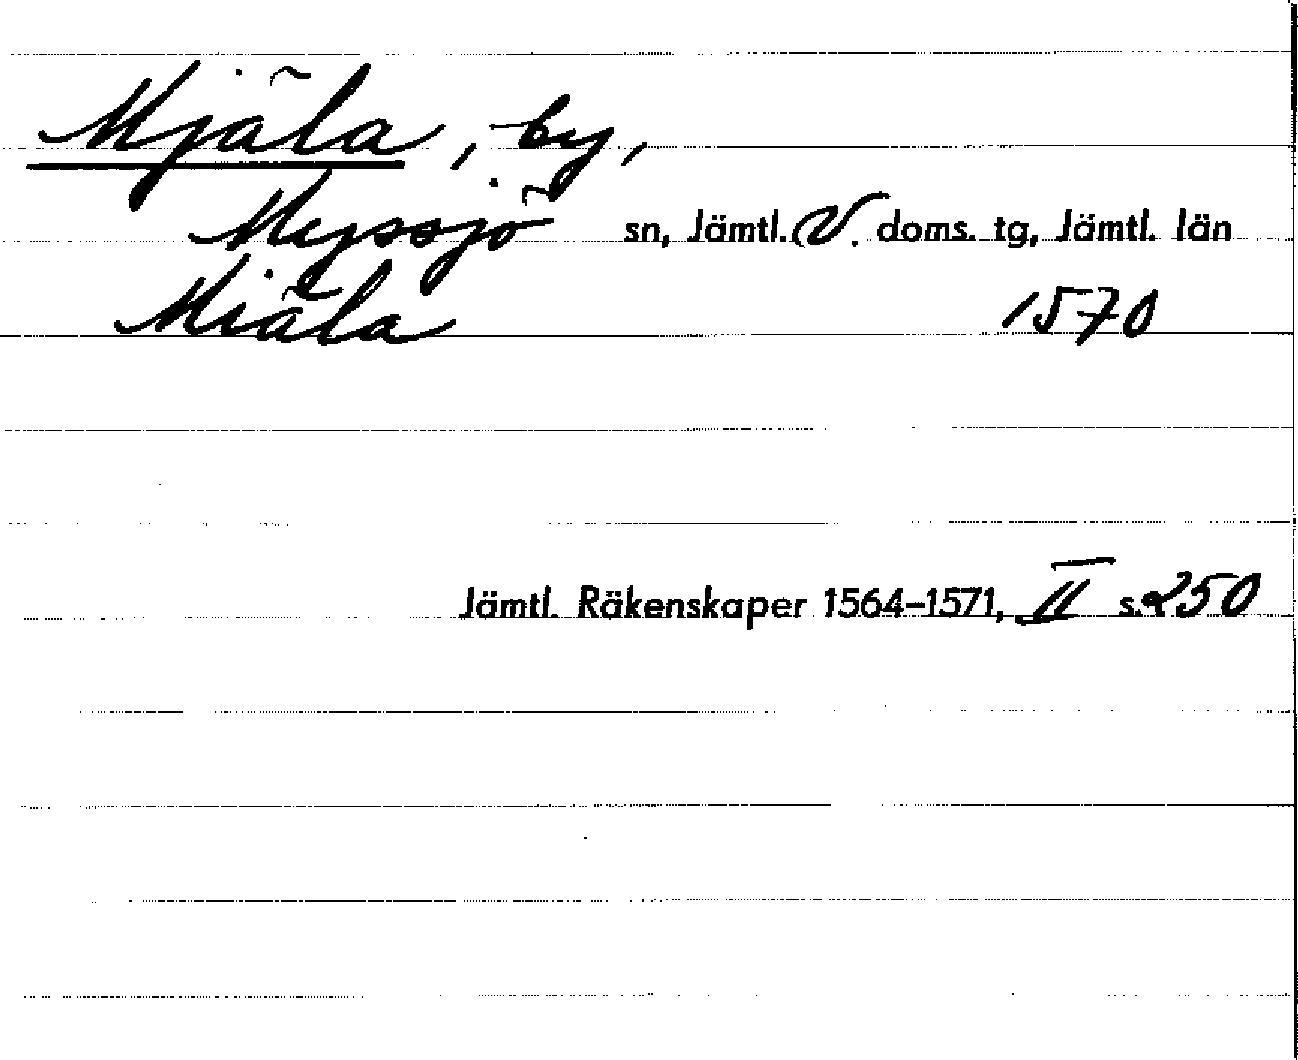 Mjäla, by,
Myssjö sn, Jämtl. V. doms. tg, Jämtl. län
Miäla 1570
Jämtl. Räkenskaper 1564-1571, II s. 250